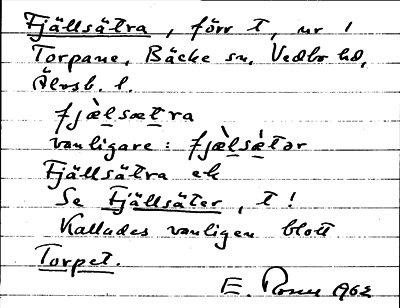 Fjällsätra, förr t, nr 1
Torpane, Bäcke sn, Vedbo hd,
Älvsb. l.
fjæ̀lsætra
vanligare: fjæ̀lsǽtər
Fjällsätra ek
Se Fjällsäter, t!
Kallades vanligen blott
Torpet.
E. 1962